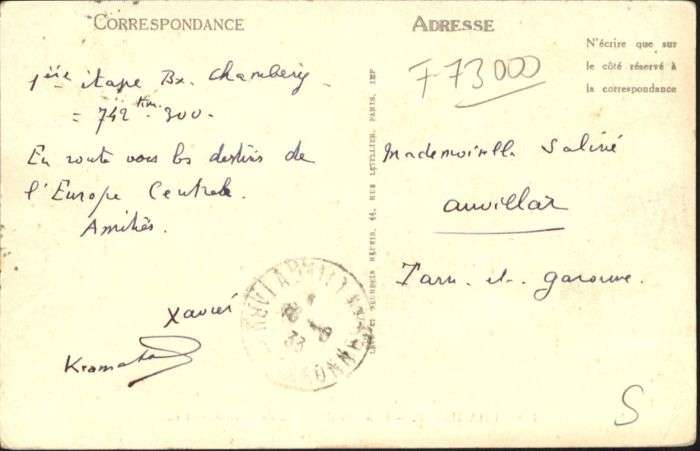 CORRESPONDANCE
1ère étape Bx. Chambéry
= 742 km. 300.
En route vers les destins de
l'Europe Centrale.
Amitiés.
Xavier
ADRESSE
N'écrire que sur
le côté réservé à
la correspondance
F 73000
Mademoiselle Saliné
Auvillar
Tarn et garonne.
LEVY ET NEURDEIN RÉUNIS, 44, RUE LETELLIER, PARIS, IMP
33
S